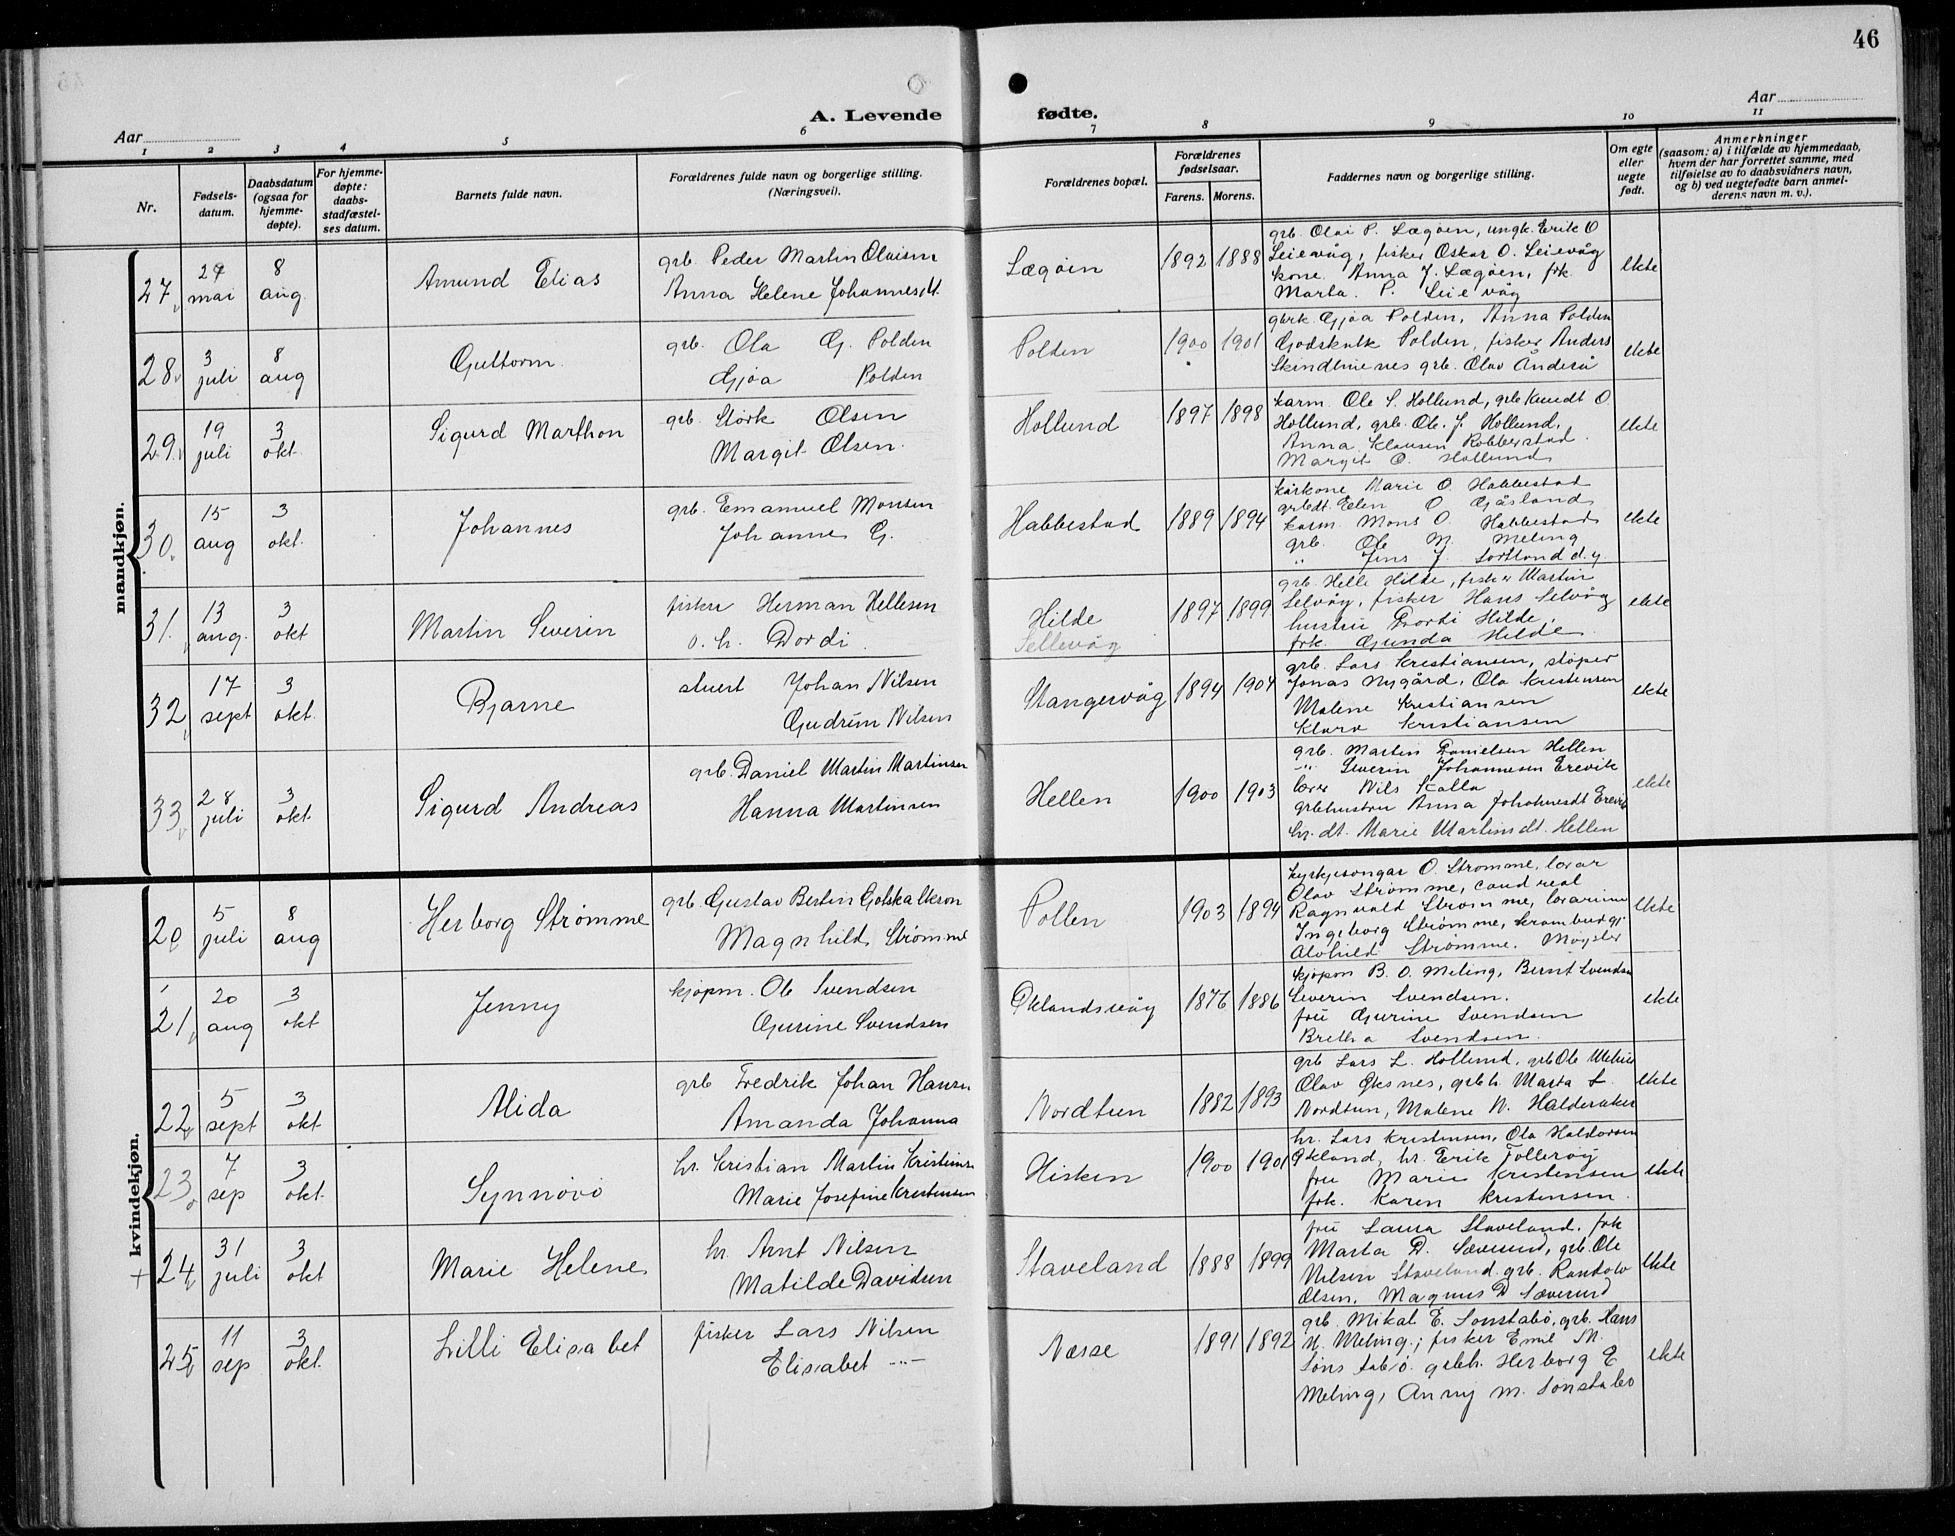 46
A. Levende fødte.
Aar
Aar
1 2 3 4 5 6 7 8 9 10 11
Nr.
Fødsels-
datum.
Daabsdatum
(ogsaa for
hjemme-
døpte).
For hjemme-
døpte:
daabs-
stadfæstel-
ses datum.
Barnets fulde navn.
Forældrenes fulde navn og borgerlige stilling.
(Næringsvei).
Forældrenes bopæl.
Forældrenes
fødselsaar.
Farens. Morens.
Faddernes navn og borgerlige stilling.
Om egte
eller
uegte
født.
Anmerkninger
(saasom: a) i tilfælde av hjemmedaab,
hvem der har forrettet samme, med
tilføielse av to daabsvidners navn,
og b) ved uegtefødte barn anmel-
derens navn m. v.).
mandkjøn.
27 mai 8 aug. Amund Elias
grb. Peder Martin Olaisen
Anna Helene Johannesdt.
Lægøen 1892 1888
grb. Olai P. Lægøen, ungk. Erik O
Leievåg, fisker Oskar O. Leievåg
kone Anna J. Lægøen, frk.
Marta P. Leievåg
ekte
28 3 juli 8 aug Guttorm.
grb. Ola G. Polden
Gjøa Polden
Polden 1900 1901
gbrk. Gjøa Polden, Anna Polden
Godskalk Polden, fisker Anders
grb. Olav
ekte
29 19 juli 3 okt. Sigurd Marthon
grb. Størk Olsen
Margit Olsen.
Hollund 1897 1898
karm. Ole S. Hollund, grb. Knudt O
Hollund, grb. Ole J. Hollund,
Anna Klausen Robberstad.
Margit O. Hollund
ekte
30 15 aug 3 okt. Johannes
grb. Emanuel Monsen
Johanne G.
Habbestad 1889 1894
kårkone Marie O. Habbestad
grbdt. Elen O Gåsland
karm. Mons O. Habbestad
grb. Ole M. Meling
" Jens J. Sortland d.y.
ekte
31. 13 aug. 3 okt Martin Severin
fisker Herman Hellesen
o. h. Dordi.
Hilde
Sellevåg
1897 1899
grb. Helle Hilde, fisker Martin
Selvåg, fisker Hans Selvåg
hustru Dorti Hilde,
frk. Gunda Hilde.
ekte
32 17 sept 3 okt. Bjarne
stuert Johan Nilsen
Gudrun Nilsen
Stangervåg 1894 1904
grb. Lars Kristiansen, støper
Jonas Nygård, Ola Kristensen
Malene Kristiansen
Klara Kristiansen
ekte
33 28 juli 3 okt. Sigurd Andreas
grb. Daniel Martin Martinsen
Hanna Martinsen
Hellen 1900 1903
grb. Martin Danielsen Hellen
" Severin Johannesen Erevik
lærer Nils Kalla
grbhustru Anna Johannesdt Erevik
hr. dt. Marie Martinsdt. Hellen
ekte
kvindekjøn.
20 5 juli 8 aug Herborg Strømme
grb. Gustav Bertin Gotskalksen
Magnhild Strømme
Pollen 1903 1894
kyrkjesongar O. Strømme, lærar
Olav Strømme, cand real
Ragnvald Strømme, lærarinne
Ingeborg Strømme,
Alvhild Strømme. Møgster
ekte
21 20 aug 3 okt Jenny
kjøpm. Ole Svendsen
Gurine Svendsen
Øklandsvåg 1876 1886
kjøpm B. O. Meling, Bernt Svendsen
Severin Svendsen.
fru Gurine Svendsen
Bretha Svendsen.
ekte
22 5 sept 3 okt Alida
grb Fredrik Johan Hansen
Amanda Johanna
Nordtun 1882 1893
grb Lars L. Hollund, grb Ole
Olav Øksnes, grbh. Marta L.
Nordtun, Malene N. Halderaker
ekte
23 7 sep 3 okt. Synnøve
hr. Kristian Martin Kristensen
Marie Josefine Kristensen
Hisken 1900 1901
hr. Lars Kristensen, Ola Haldorsen
Økland, hr. Erik Tollevåg
fru Marie Kristensen
frk. Karen Kristensen.
ekte
+ 24 31 juli 3 okt Marie Helene
hr. Arnt Nilsen
Matilde Davidsen
Staveland 1888 1899
fru Laura Staveland, frk
Marta D. Sæverud, grb. Ole
Nilsen Staveland grb. Randolv
Olsen, Magnus D Sæverud
ekte
25 11 sep 3 okt. Lilli Elisabet
fisker Lars Nilsen
Elisabet -"-
Næsse 1891 1892
grb. Mikal E. Sønstabø, grb. Hans
N. Meling; fisker Emil M.
Sønstabø. grbh. Herborg E
Meling, Anny M. Sønstabø
ekte